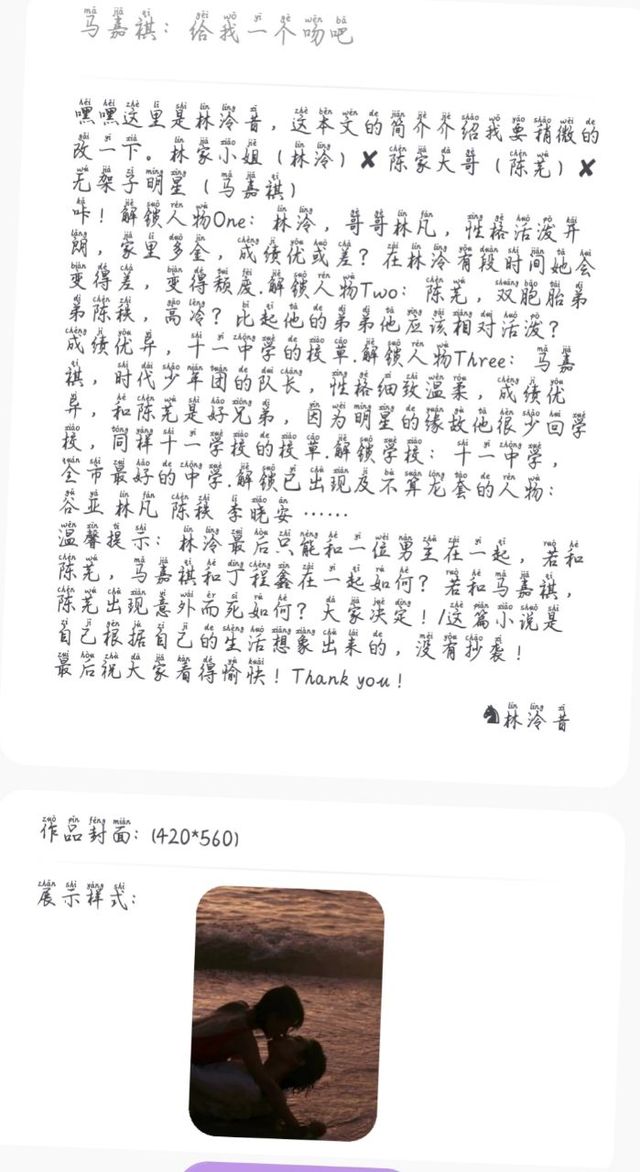 马嘉祺：给我一个吻吧
嘿嘿这里是林泠昔，这本文的简介介绍我要稍微的
改一下。林家小姐（林泠）✘陈家大哥（陈芜）✘
无架子明星（马嘉祺）
咔！解锁人物One：林泠，哥哥林凡，性格活泼开
朗，家里多金，成绩优或差？在林泠有段时间她会
变得差，变得颓废.解锁人物Two：陈芜，双胞胎弟
弟陈秩，高冷？比起他的弟弟他应该相对活泼？
成绩优异，十一中学的校草.解锁人物Three：马嘉
祺，时代少年团的队长，性格细致温柔，成绩优
异，和陈芜是好兄弟，因为明星的缘故他很少回学
校，同样十一学校的校草.解锁学校：十一中学，
全市最好的中学.解锁已出现及不算龙套的人物：
谷亚 林凡 陈秩 李晓安……
温馨提示：林泠最后只能和一位男主在一起，若和
陈芜，马嘉祺和丁程鑫在一起如何？若和马嘉祺，
陈芜出现意外而死如何？大家决定！/这篇小说是
自己根据自己的生活想象出来的，没有抄袭！
最后祝大家看得愉快！Thank you！
♞林泠昔
作品封面：(420*560)
展示样式：